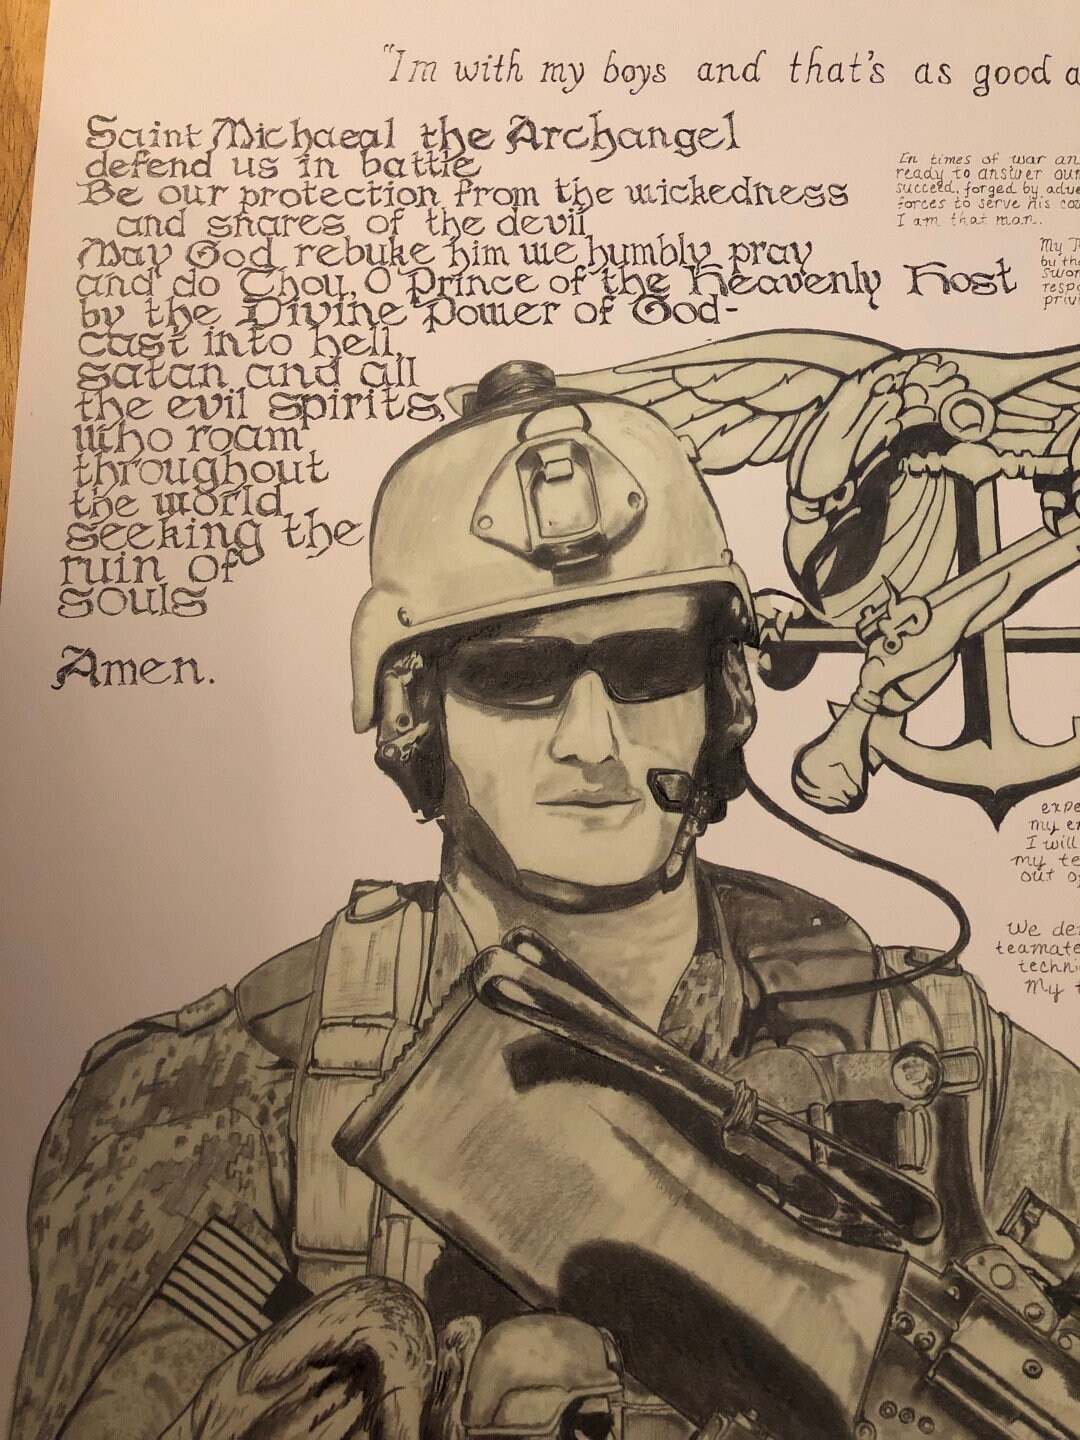 "Im with my boys and that's as good a
Saint Michaeal the Archangel
defend us in battle
Be our protection from the wickedness
and snares of the devil
May God rebuke him we humbly pray
and do Thou, O Prince of the Heavenly Host
by the Divine Power of God-
cast into hell,
satan and all
the evil spirits,
who roam
throughout
the world
seeking the
ruin of
souls
Amen.
In times of war an
ready to answer our
succeed, forged by adve
forces to serve his co
I am that man.
My T
by th
swor
resp
priv
expe
my e
I will
my te
out o
We de
teammate
techni
My t